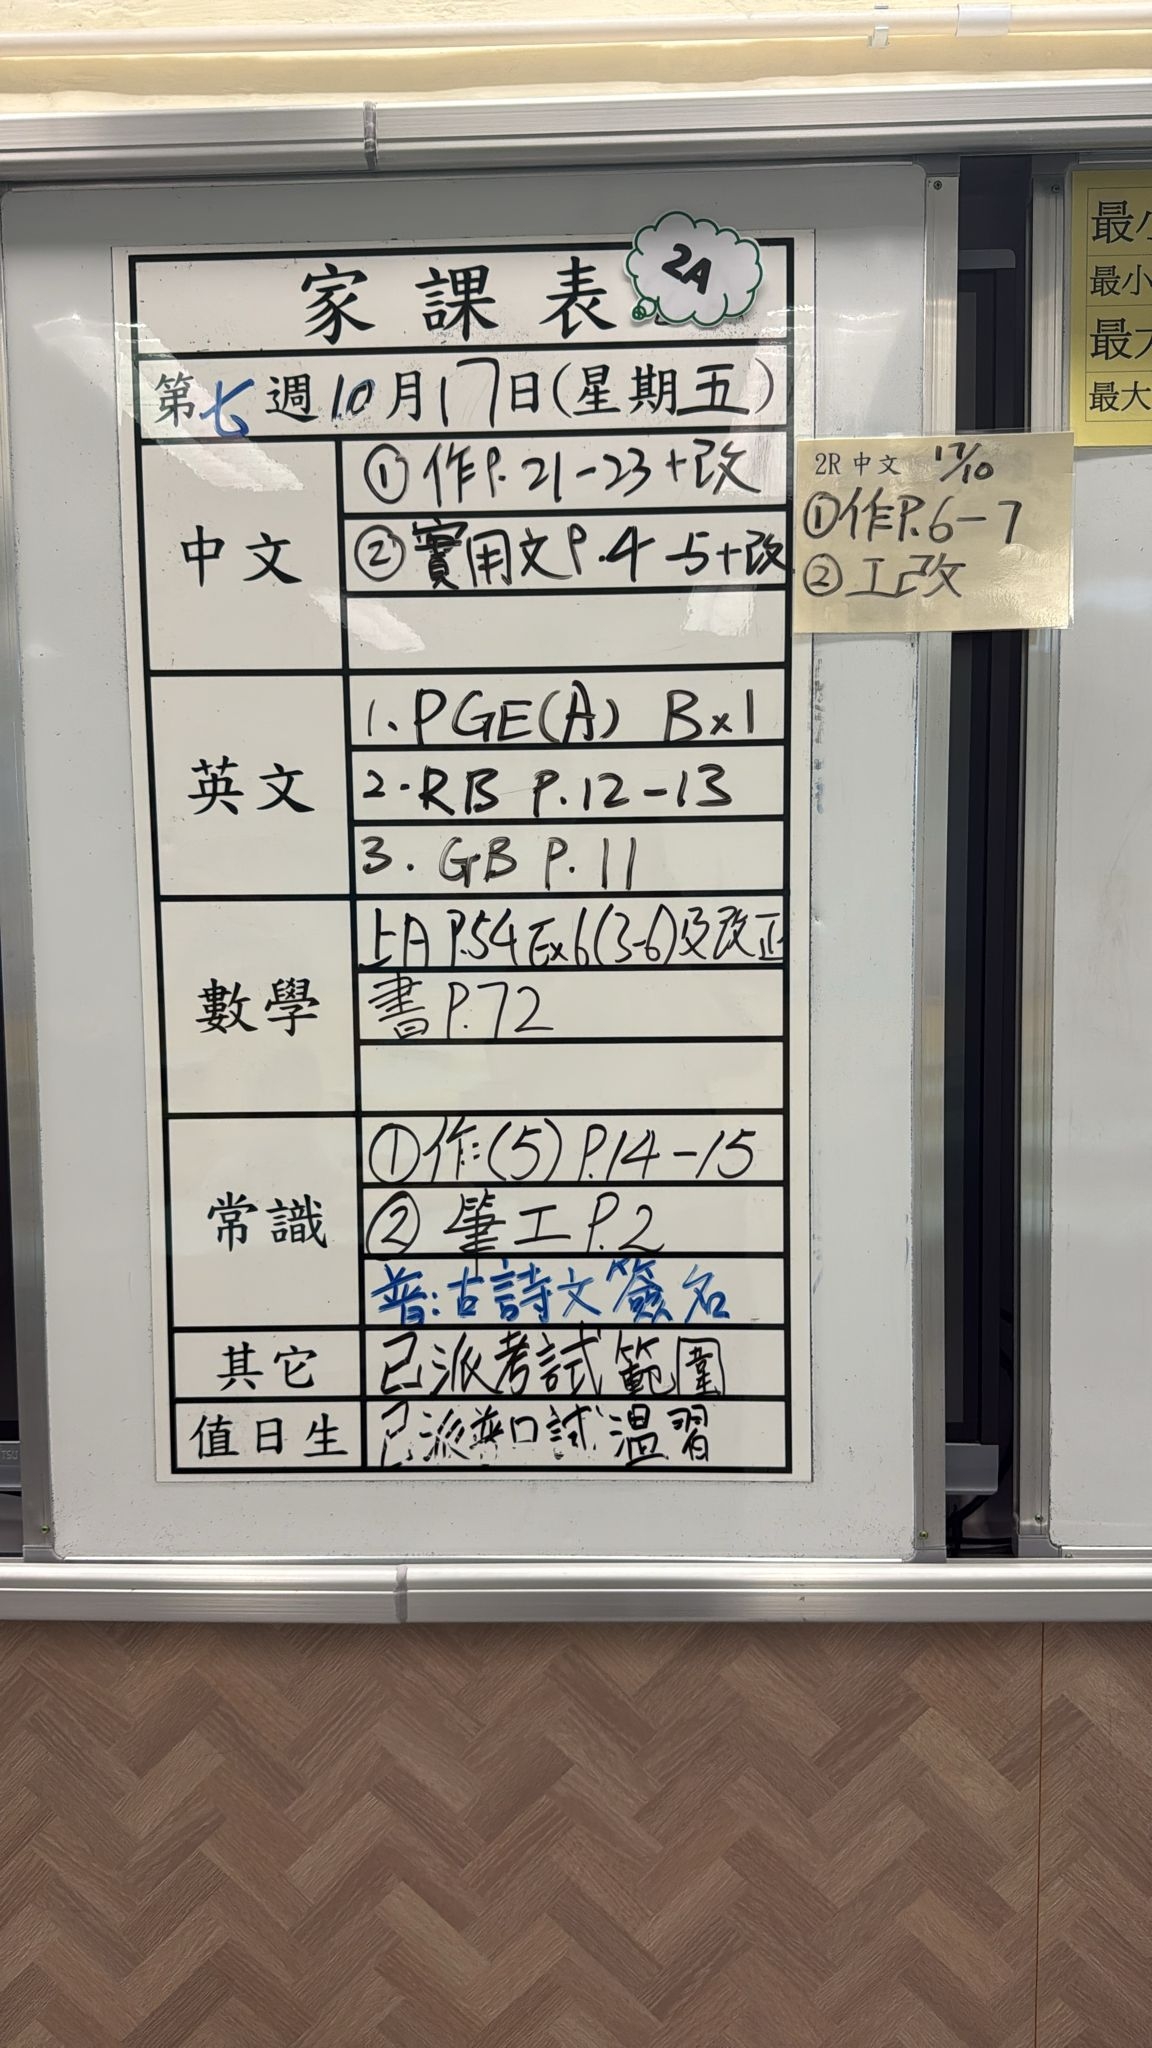 家課表
2A
第七週10月17日(星期五)
中文
①作P.21-23+改
②實用文P.4-5+改
2R 中文 17/10
①作P.6-7
②工改
英文
1.PGE(A) B×1
2.RB P.12-13
3.GB P.11
數學
上A P.54 Ex6(3-6)及改正
書P.72
常識
①作:(5) P.14-15
②筆工P.2
普:古詩文簽名
其它
已派考試範圍
值日生
已派普口試溫習
最
最小
最大
最大